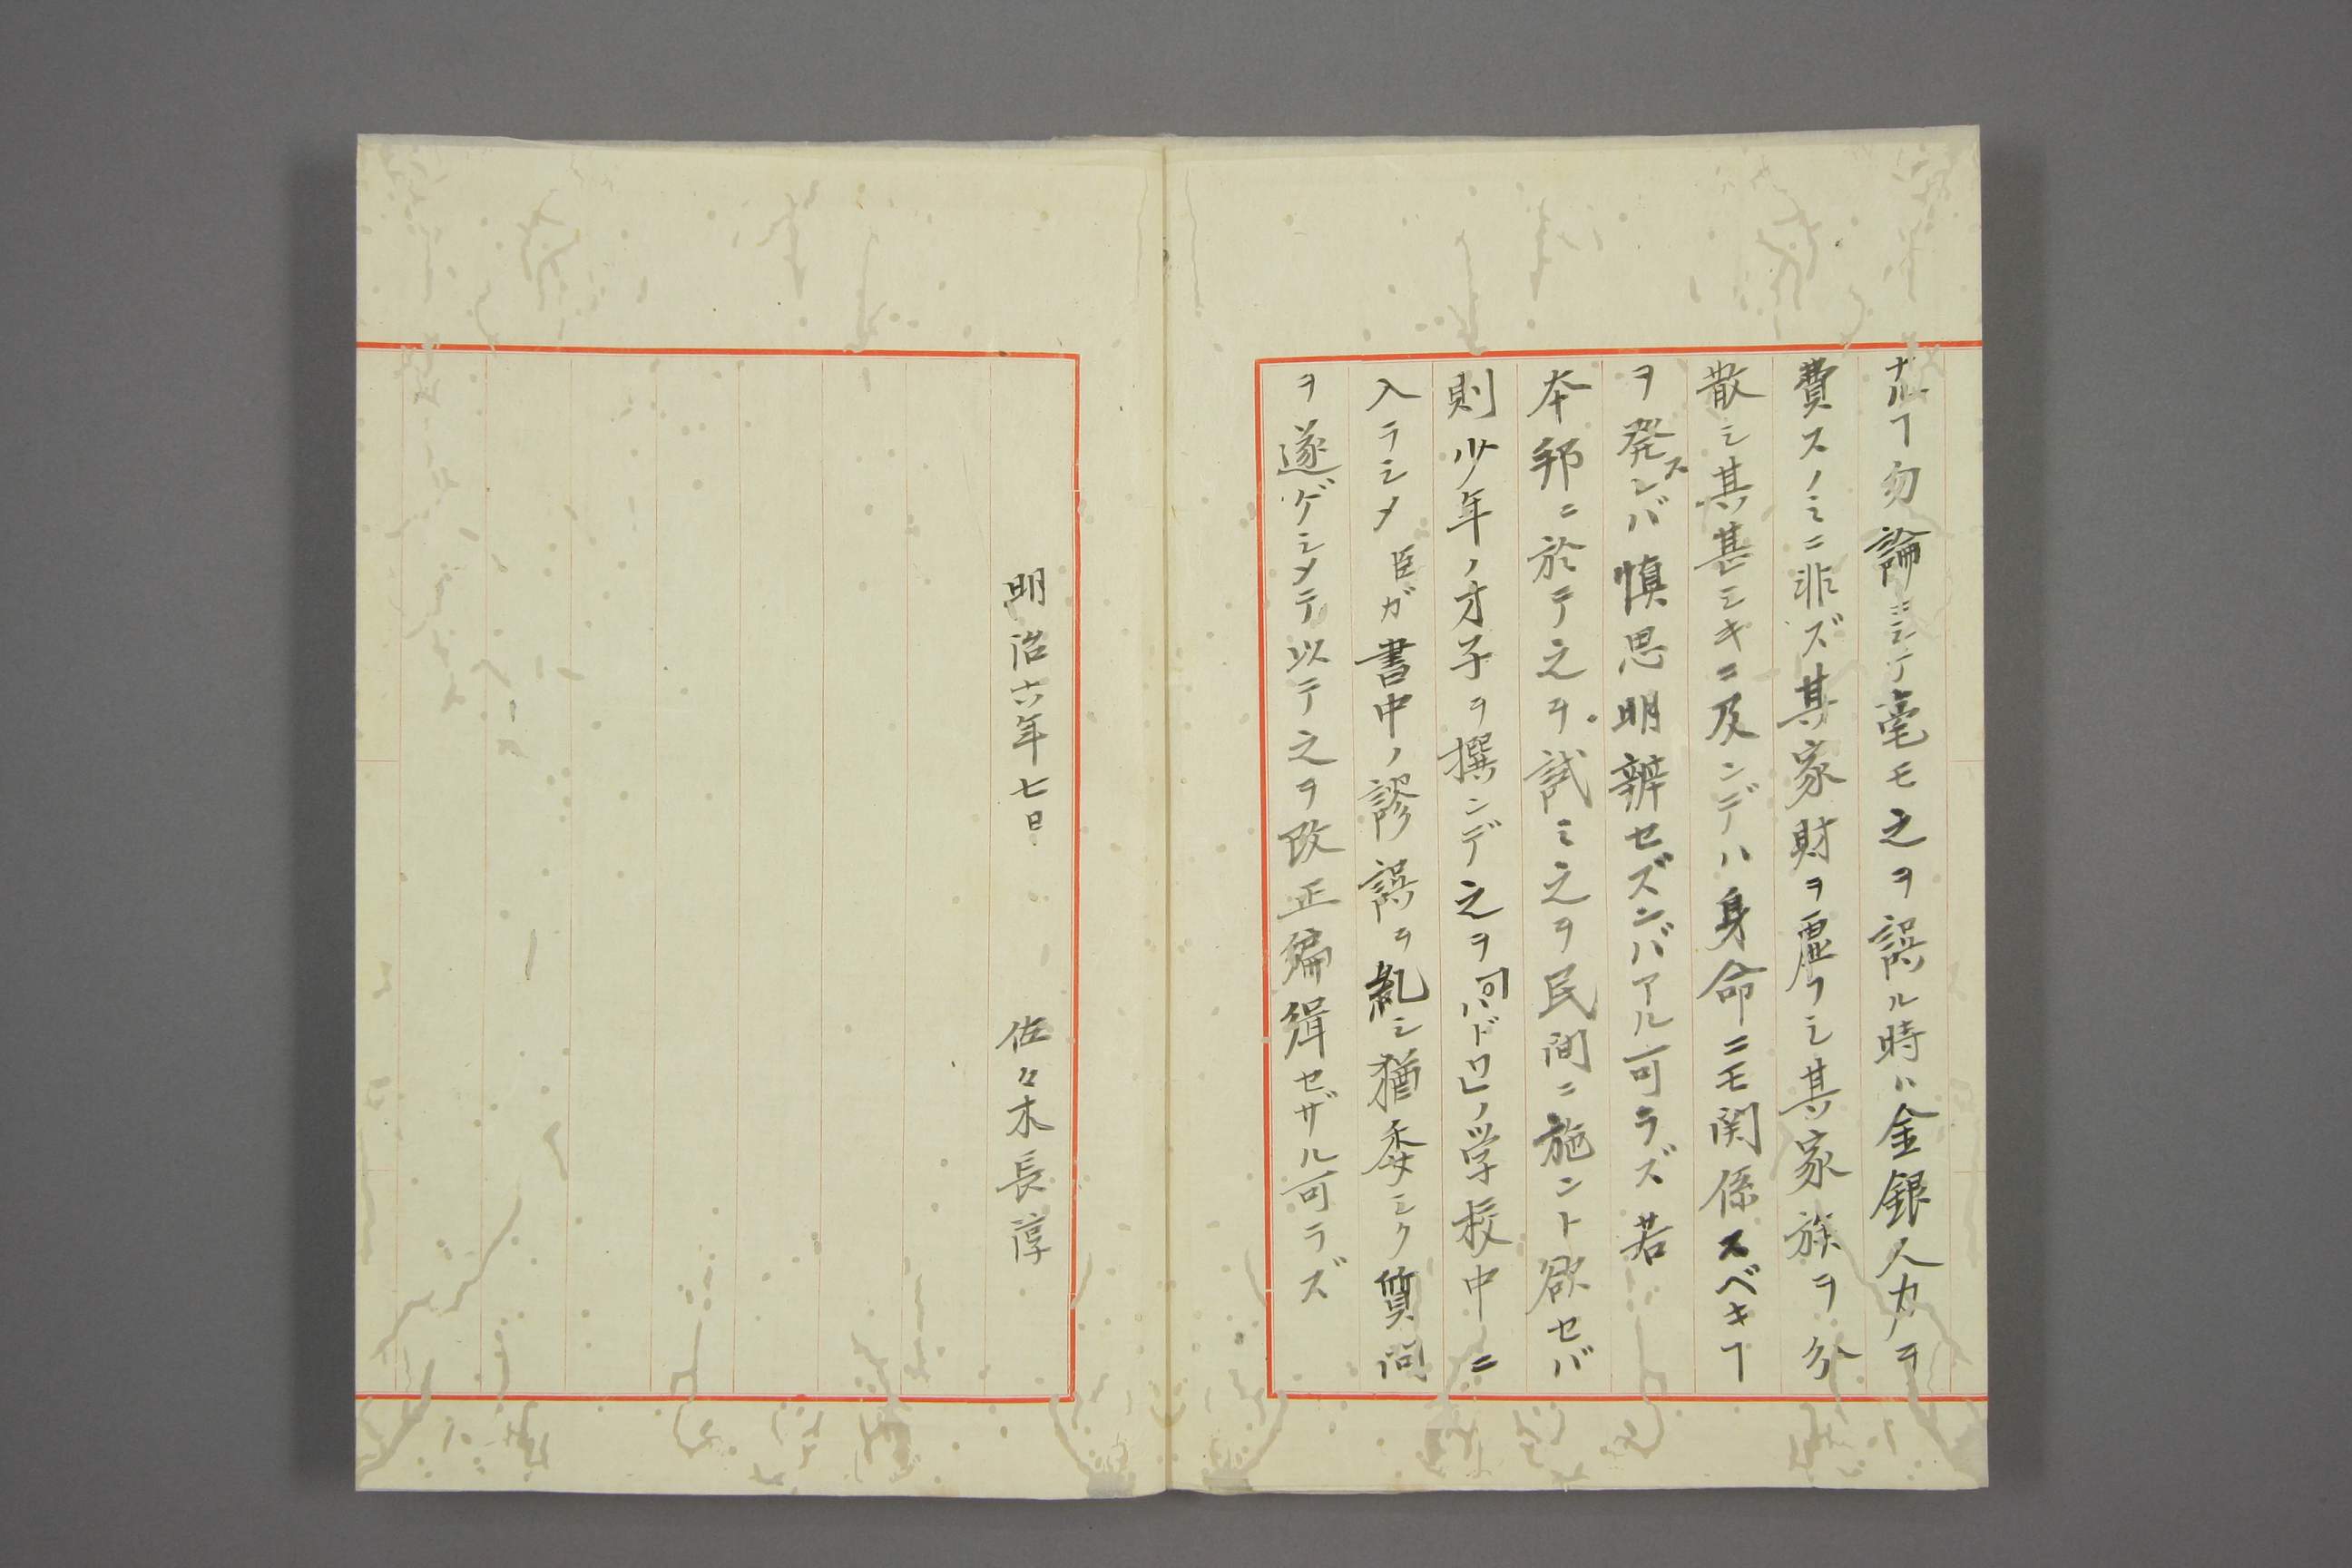 ナルヿ勿論ニシテ毫モ之ヲ誤ル時ハ金銀人力ヲ
費スノミニ非ズ其家財ヲ虚フシ其家族ヲ分
散シ其甚シキニ及ンデハ身命ニモ関係スベキヿ
ヲ発スレバ慎思明辨セズンバアル可ラズ若
本邦ニ於テ之ヲ試ミ之ヲ民間ニ施ント欲セバ
則少年ノ才子ヲ撰ンデ之ヲ「パドワ」ノ学校中ニ
入ラシメ臣ガ書中ノ謬誤ヲ糺シ猶委シク質問
ヲ遂ゲシメテ以テ之ヲ改正編緝セザル可ラズ
明治六年七日
佐々木長淳